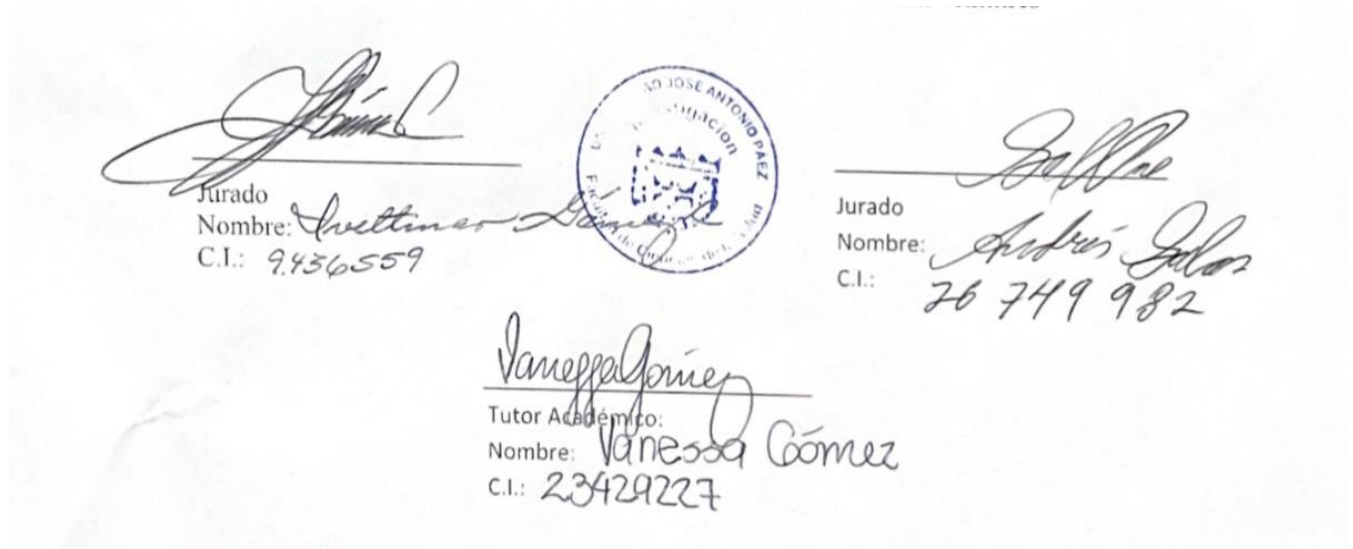 Jurado
Nombre: Gómez
C.I.: 9.436559
JOSE ANTONIO PAEZ
Jurado
Nombre: Andrés Salas
C.I.: 26 749 982
Vanessa Gómez
Tutor Académico:
Nombre: Vanessa Gómez
C.I.: 23429227